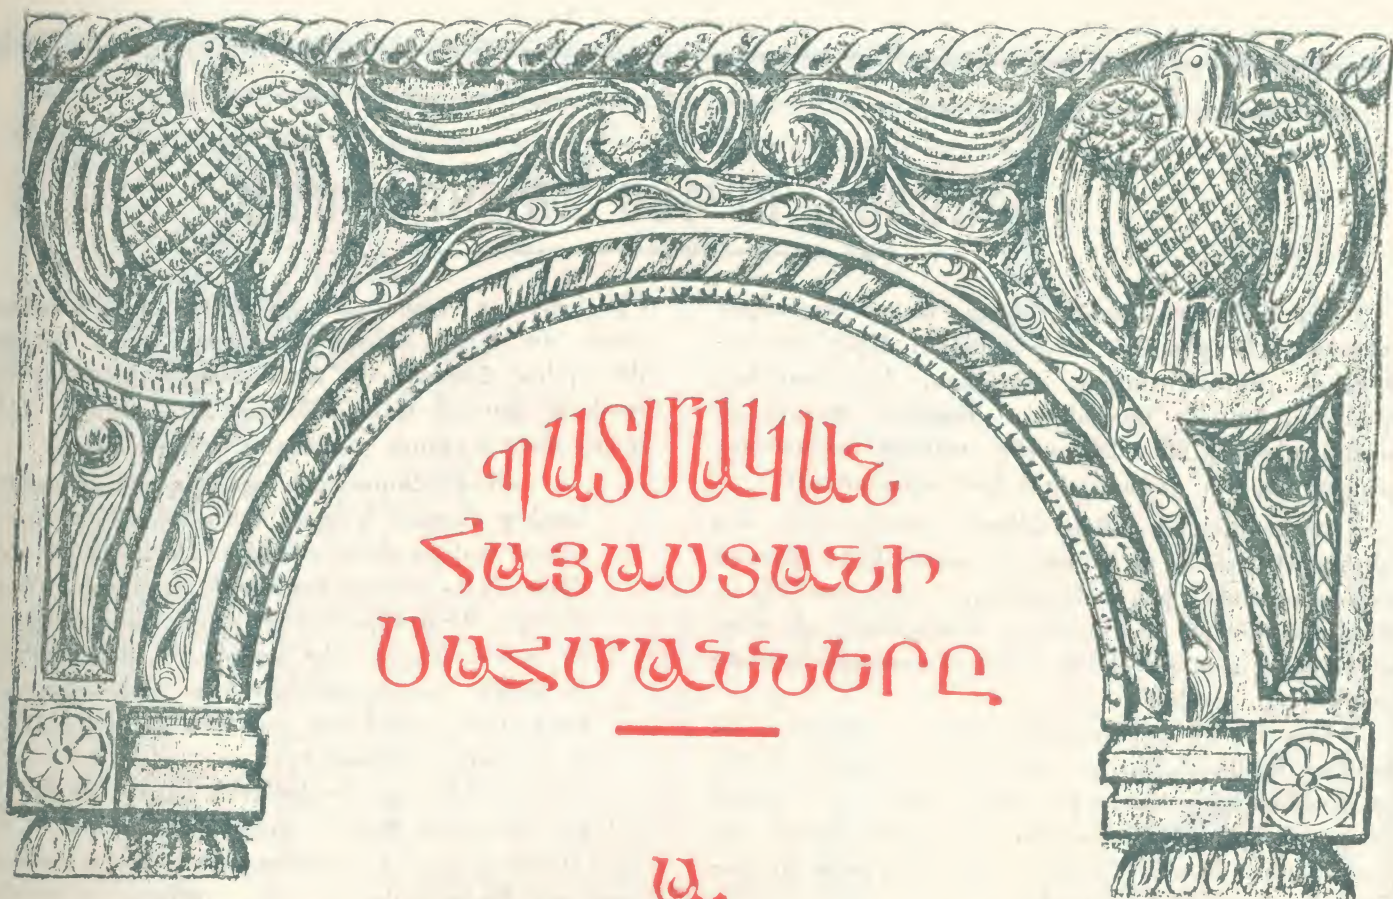 ՊԱՏՄԱԿԱՆ
ՀԱՅԱՍՏԱՆԻ
ՍԱՀՄԱՆՆԵՐԸ
Ա.